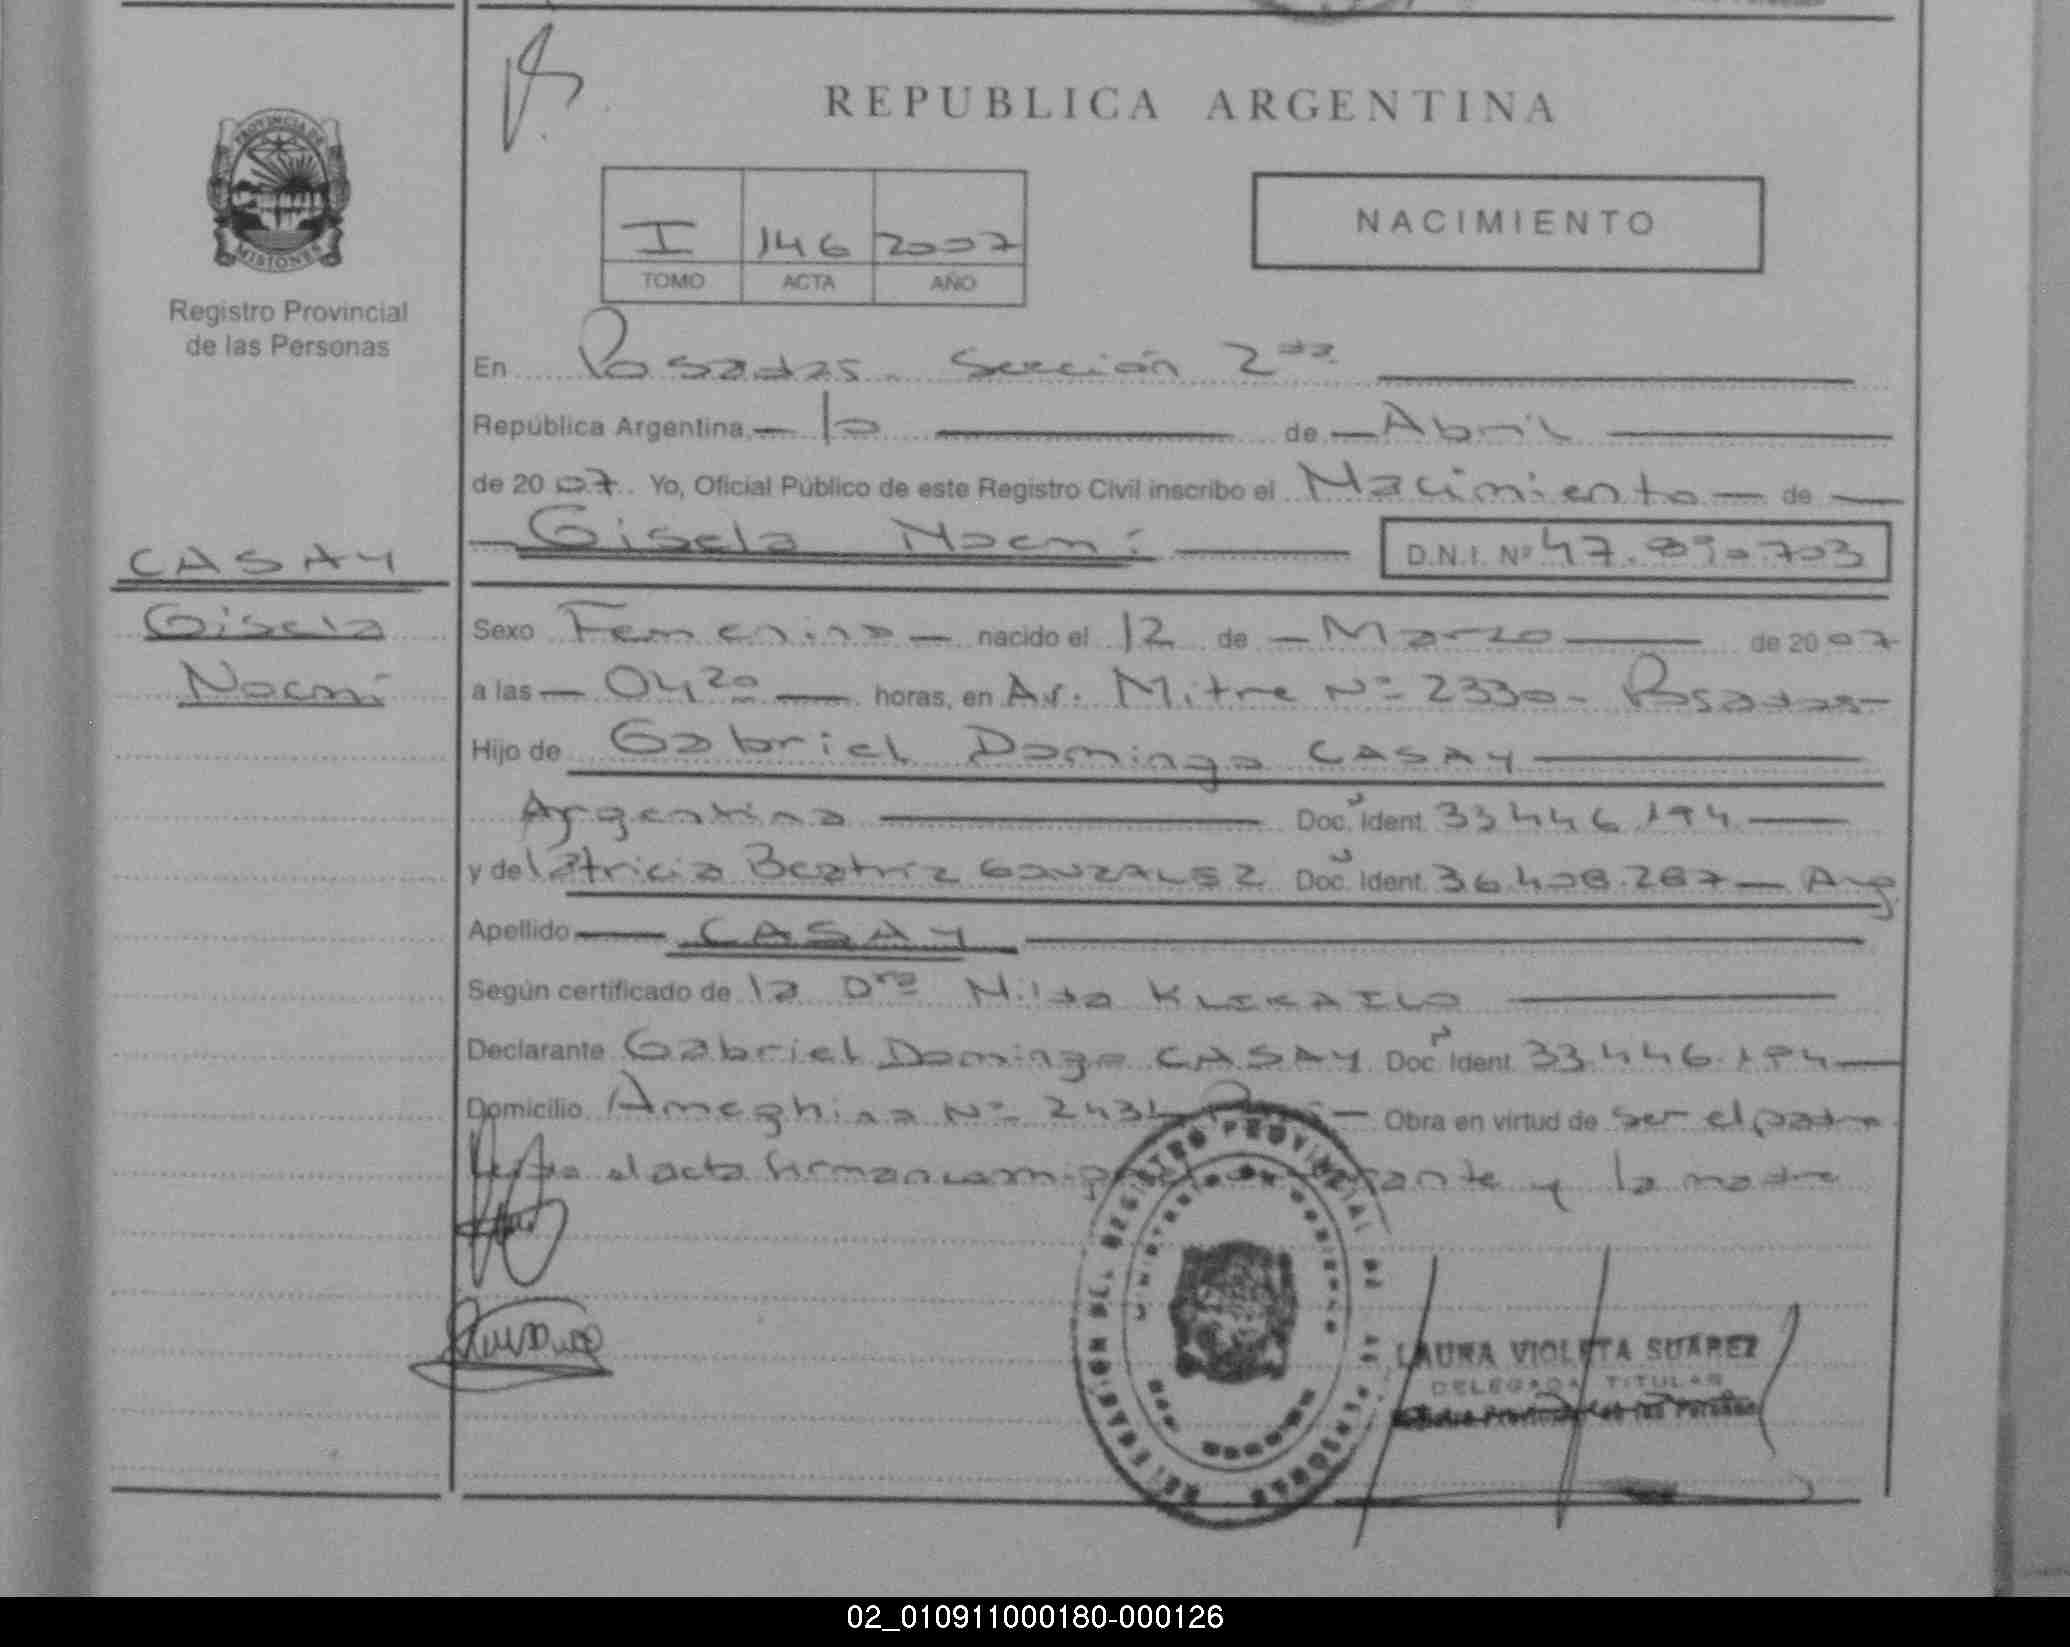 REPUBLICA ARGENTINA
PROVINCIA DE
MISIONES
Registro Provincial
de las Personas
I 146 2007
TOMO ACTA AÑO
NACIMIENTO
En Posadas. Sección 2da
República Argentina, 10 de Abril
de 2007. Yo, Oficial Público de este Registro Civil inscribo el Nacimiento de
Gisela Noemí D.N.I. Nº 47.890.703
CASAY
Gisela
Noemí
Sexo Femenino nacido el 12 de Marzo de 2007
a las 04 20 horas, en Av. Mitre Nº 2330 - Posadas
Hijo de Gabriel Domingo CASAY
Argentino Doc. Ident. 33.446.194
y de Patricia Beatriz GONZALEZ Doc. Ident. 36.408.287 Arg
Apellido CASAY
Según certificado de la Dra Nilda
Declarante Gabriel Domingo CASAY Doc. Ident. 33.446.194
Domicilio Ameghino Nº Obra en virtud de ser el padre
el acta firman la madre
REGISTRACION DEL REGISTRO PROVINCIAL DE LAS PERSONAS
LAURA VIOLETA SUAREZ
DELEGADA TITULAR
02_010911000180-000126